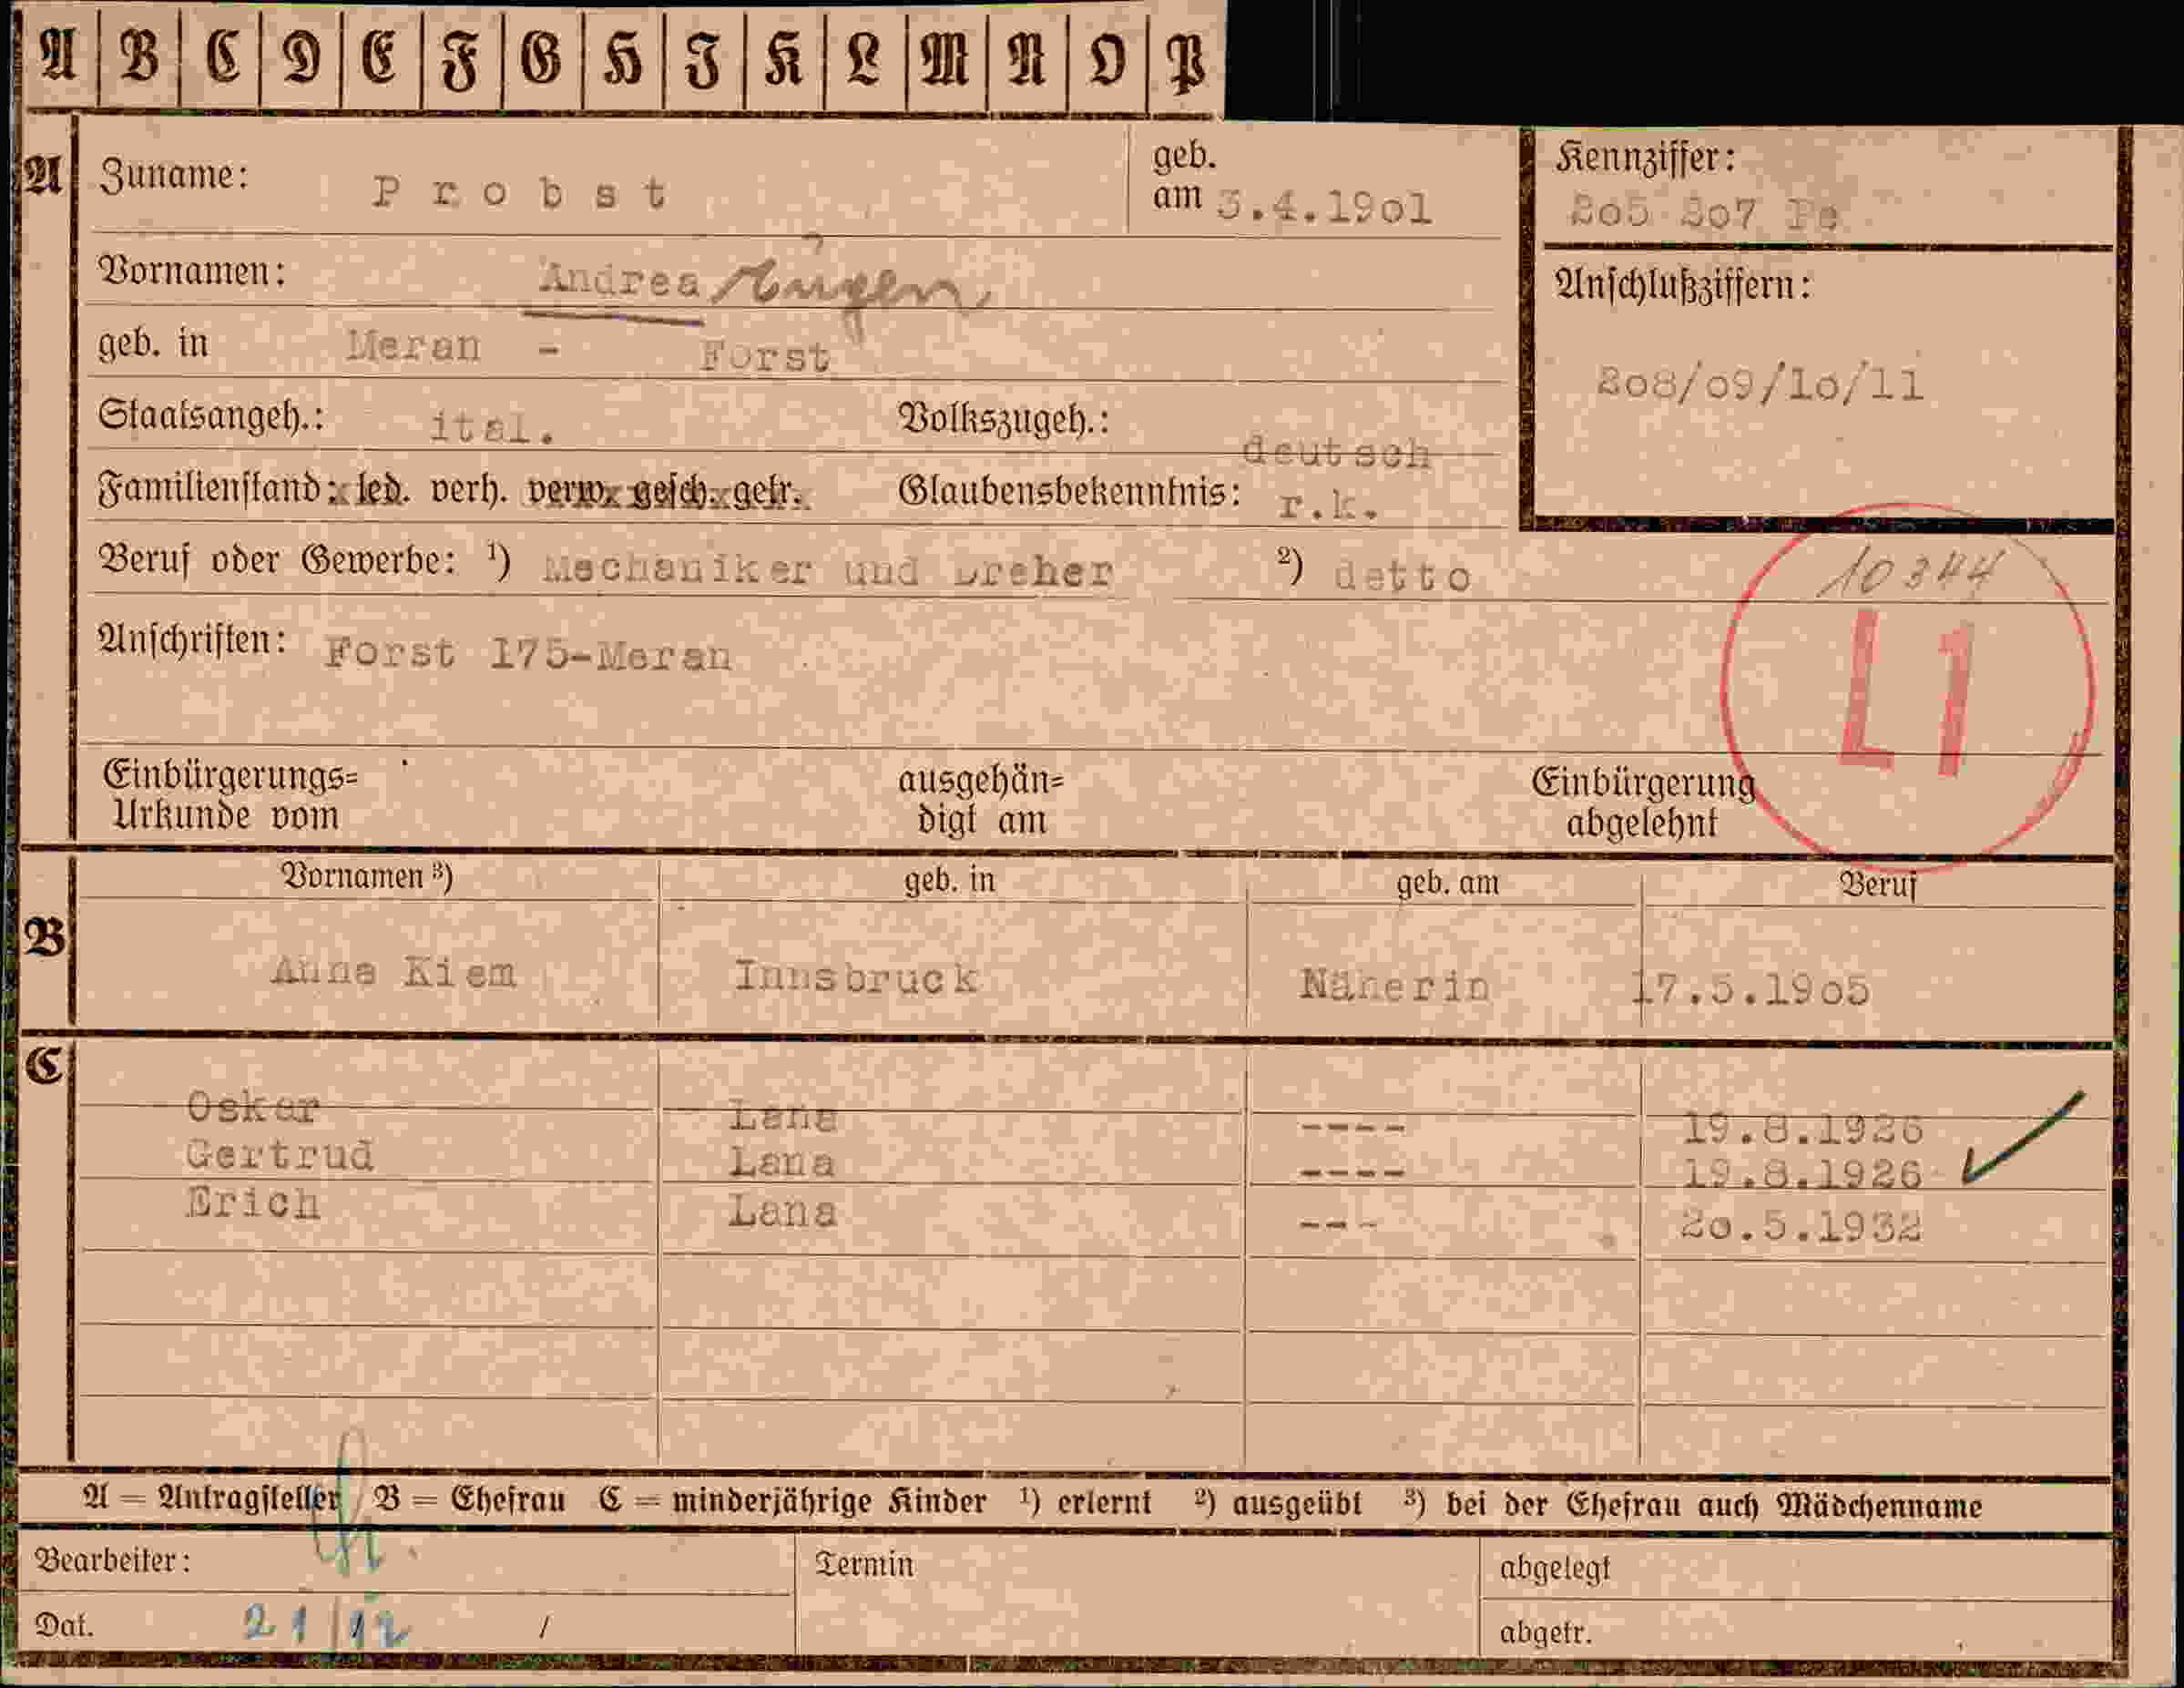 A B C D E F G H I K L M N O P
A Zuname: Probst geb. am 3.4.19o1
Kennziffer: 2o5 2o7 Pe
Vornamen: Andrea Eugen
Anschlußziffern:
geb. in Meran - Forst
2o8/o9/1o/11
Staatsangeh.: ital. Volkszugeh.: deutsch
Familienstand: led. verh. verw. gesch. getr. Glaubensbekenntnis: r.k.
Beruf oder Gewerbe: ¹) Mechaniker und Dreher ²) detto
10344
Anschriften: Forst 175-Meran
L1
Einbürgerungs= ausgehän= Einbürgerung
Urkunde vom digt am abgelehnt
Vornamen ³) geb. in geb. am Beruf
B Anna Kiem Innsbruck Näherin 17.5.19o5
C
Oskar Lana ---- 19.8.1926
Gertrud Lana ---- 19.8.1926
Erich Lana --- 2o.5.1932
A = Antragsteller B = Ehefrau C = minderjährige Kinder ¹) erlernt ²) ausgeübt ³) bei der Ehefrau auch Mädchenname
Bearbeiter: Termin abgelegt
Dat. 21/12 / abgetr.